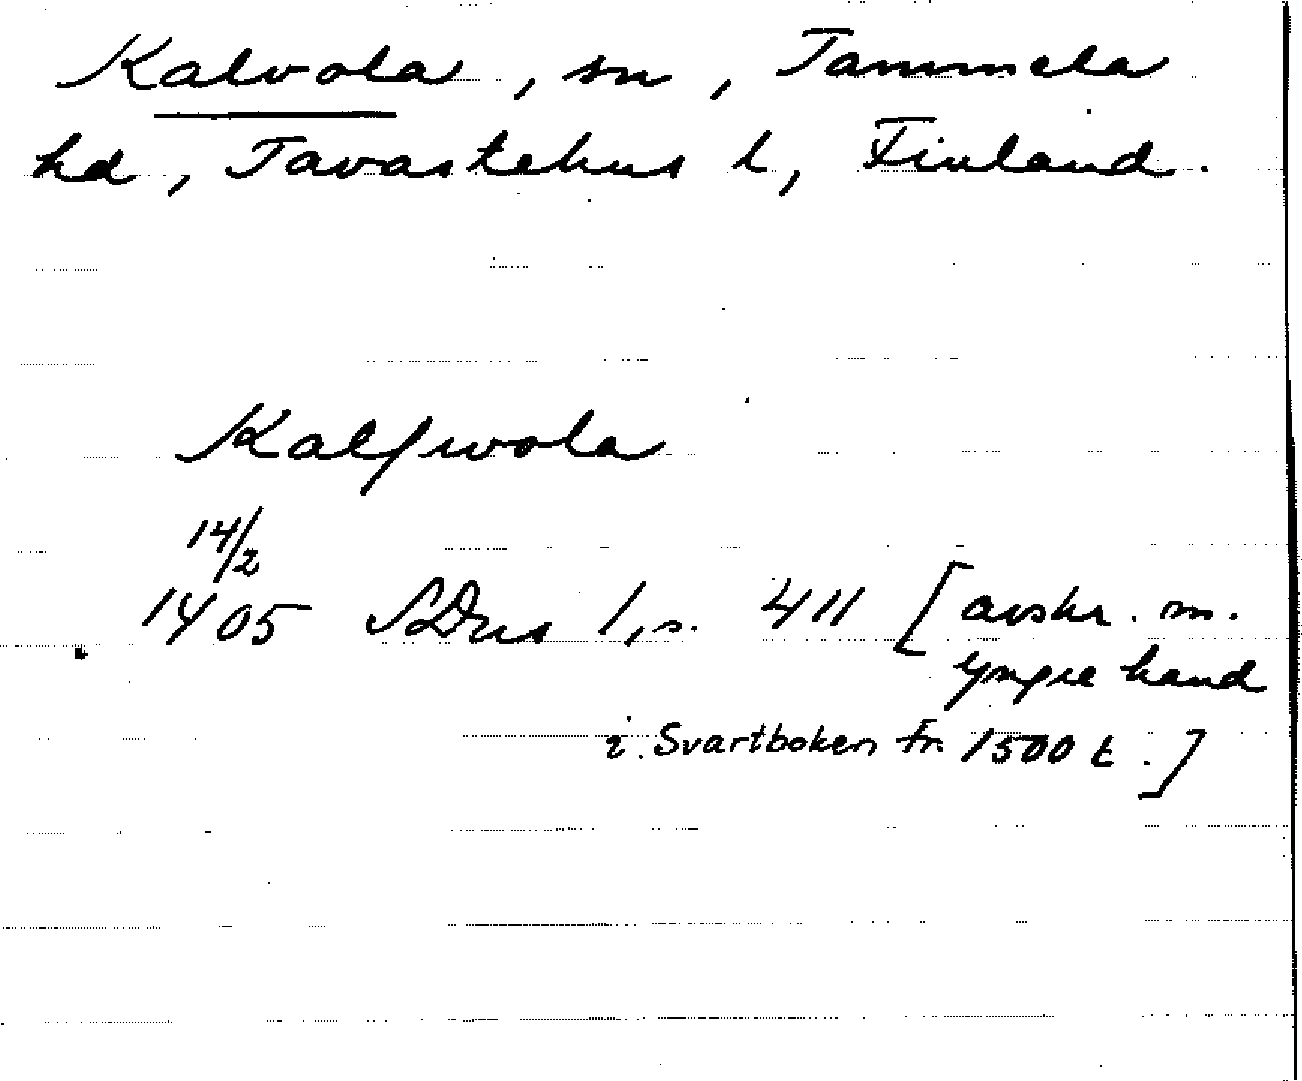 Kalvola, sn, Tammela
hd, Tavastehus l, Finland.
Kalfwola
14/2
1405 SDns 1, s. 411 [avskr. m.
yngre hand
i Svartboken fr. 1500 t.]